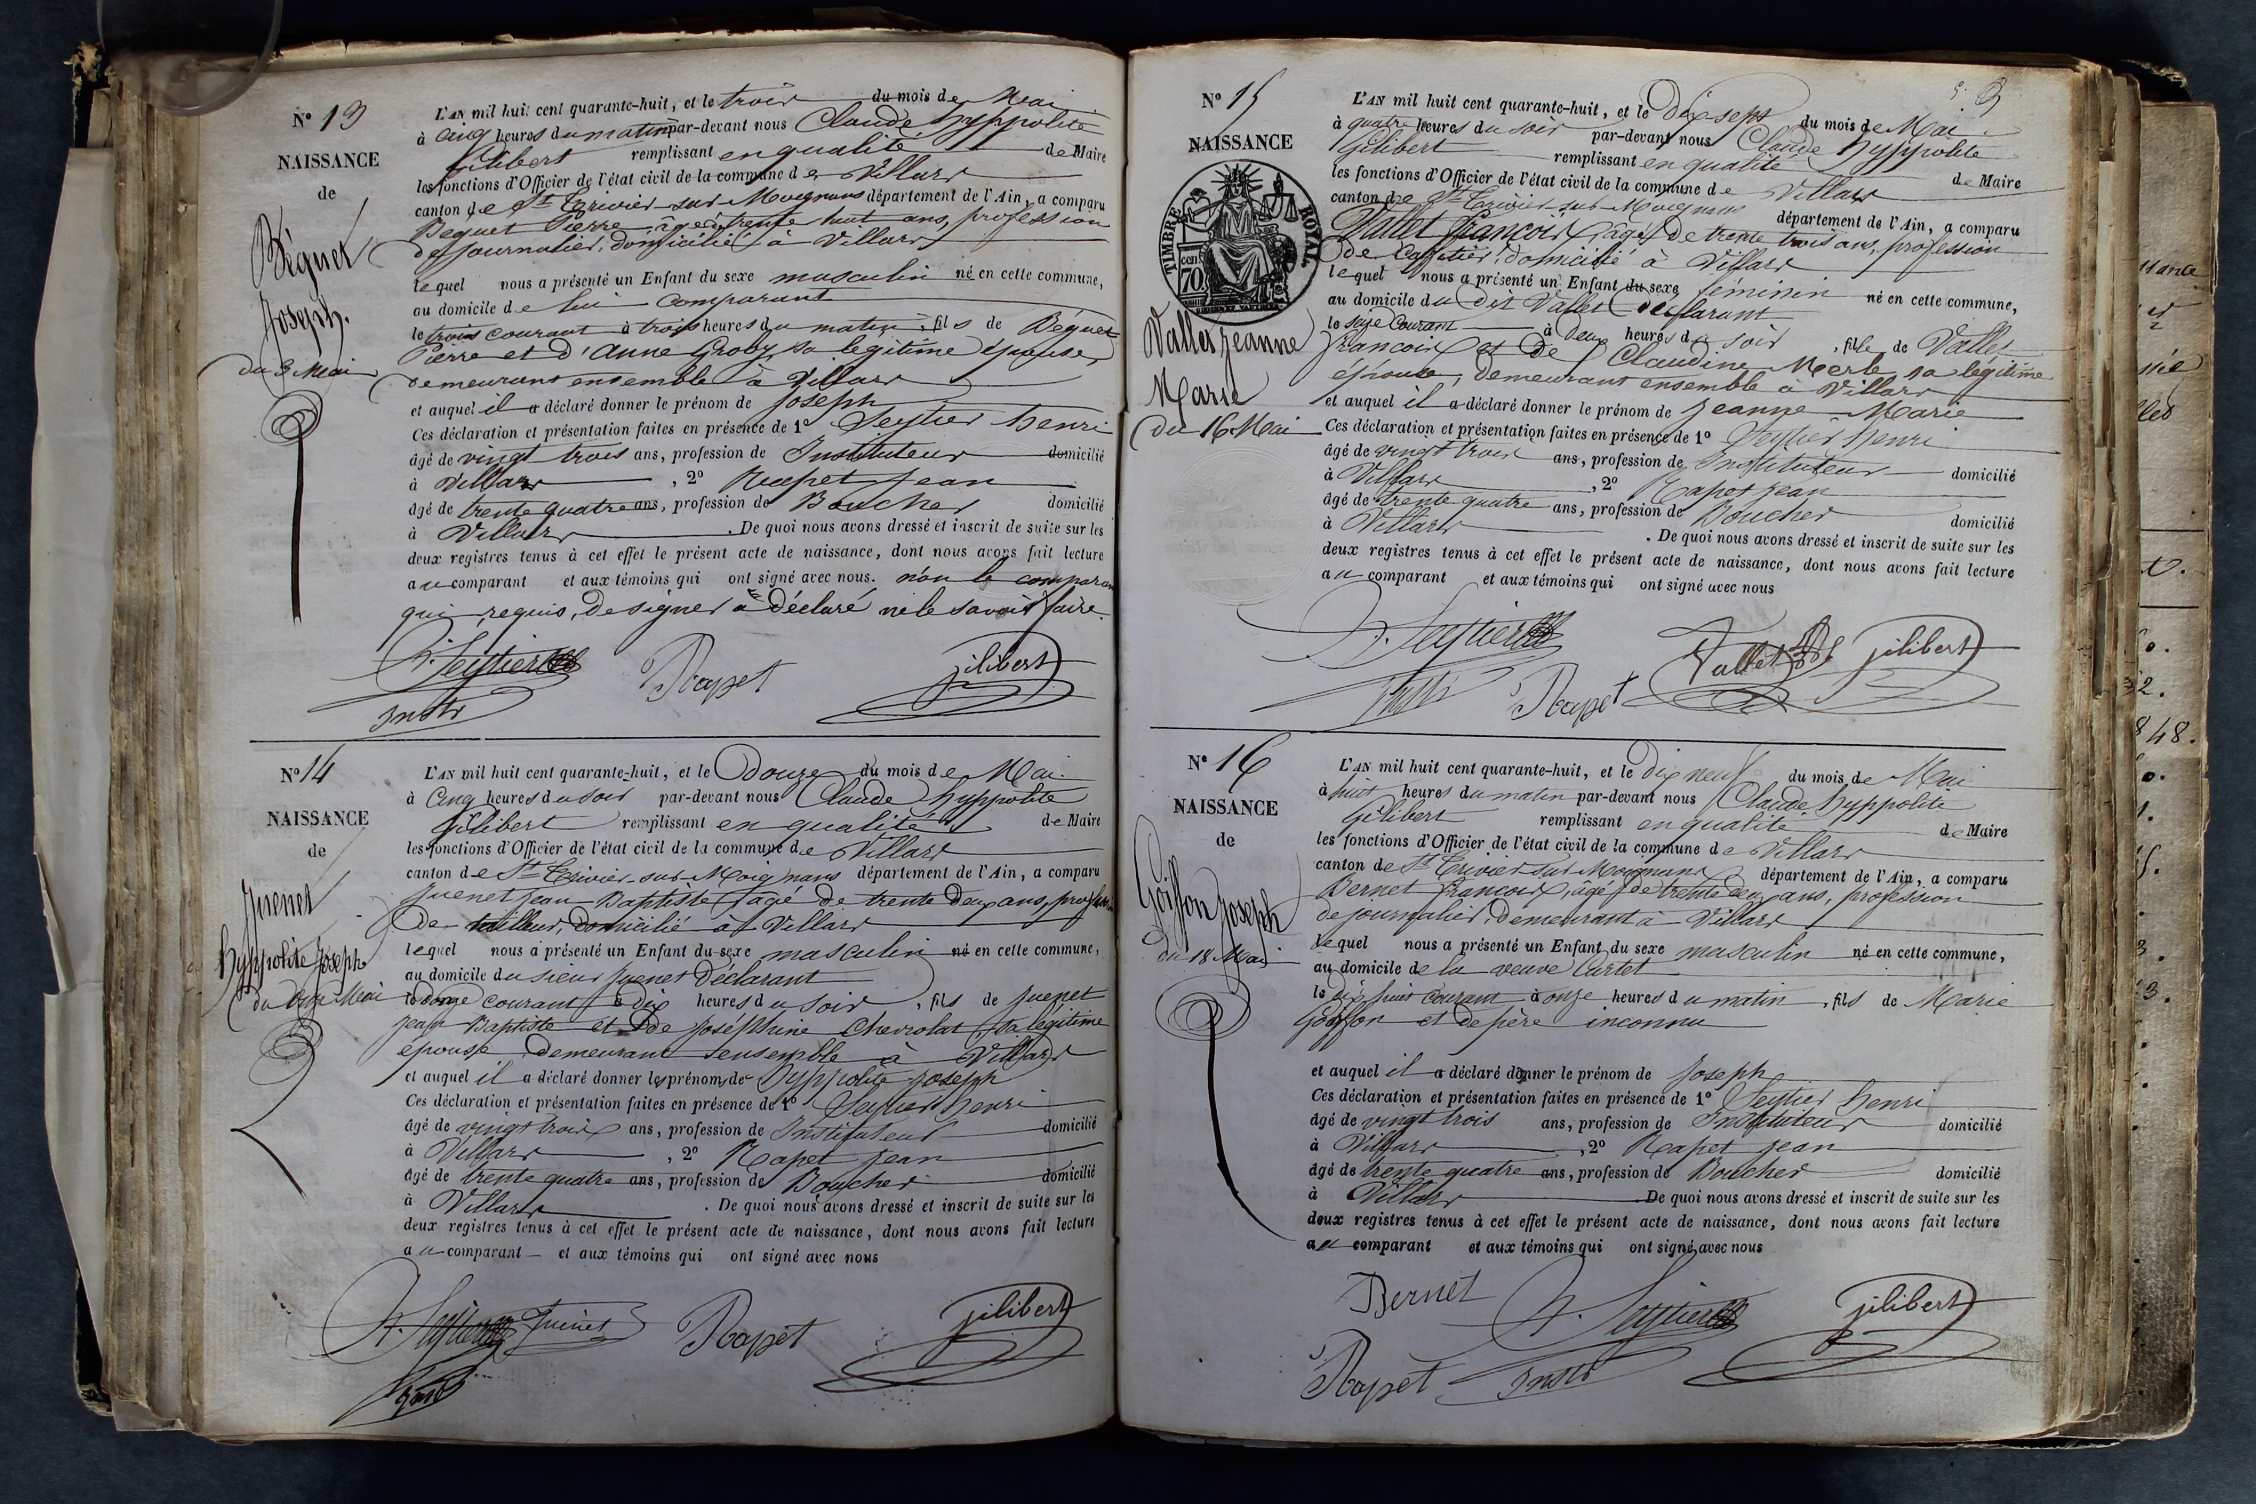 N° 13
NAISSANCE
de
Béguet
Joseph.
du 3 Mai
L'AN mil huit cent quarante-huit, et le trois du mois de Mai
à cinq heures du matin par-devant nous Claude hyppolite
Gilibert remplissant en qualité de Maire
les fonctions d'Officier de l'état civil de la commune de Villars
canton de St Trivier sur Moignans département de l'Ain, a comparu
Beguet Pierre, âgé de trente huit ans, profession
de journalier, domicilié à Villars
lequel nous a présenté un Enfant du sexe masculin né en cette commune,
au domicile de lui comparant
le trois courant à trois heures du matin, fils de Béguet
Pierre et d'Anne Groby, sa légitime épouse,
demeurant ensemble à Villars
et auquel il a déclaré donner le prénom de Joseph
Ces déclaration et présentation faites en présence de 1° Seytier henri
âgé de vingt trois ans, profession de Instituteur domicilié
à Villars, 2° Rapet Jean
âgé de trente quatre ans, profession de Boucher domicilié
à Villars. De quoi nous avons dressé et inscrit de suite sur les
deux registres tenus à cet effet le présent acte de naissance, dont nous avons fait lecture
au comparant et aux témoins qui ont signé avec nous. non le comparant
qui requis, de signer a déclaré ne le savoir faire.
h. Seytier
Rapet
gilibert
Instr
N° 14
NAISSANCE
de
Juenet
hyppolite Joseph
L'AN mil huit cent quarante-huit, et le douze du mois de Mai.
à Cinq heures du soir par-devant nous Claude hyppolite
Gilibert remplissant en qualité de Maire
les fonctions d'Officier de l'état civil de la commune de Villars
canton de St Trivier-sur-Moignans département de l'Ain, a comparu
Juenet Jean Baptiste, âgé de trente deux ans, profession
de tailleur, domicilié à Villars
lequel nous a présenté un Enfant du sexe masculin né en cette commune,
au domicile du sieur Juenet Déclarant
courant à dix heures du soir, fils de Juenet
Jean Baptiste et de Joséphine Chevrolat, sa légitime
épouse demeurant ensemble à Villars
et auquel il a déclaré donner les prénoms de hyppolite Joseph
Ces déclaration et présentation faites en présence de 1° Seytier henri
âgé de vingt trois ans, profession de Instituteur domicilié
à Villars, 2° Rapet Jean
âgé de trente quatre ans, profession de Boucher domicilié
à Villars. De quoi nous avons dressé et inscrit de suite sur les
deux registres tenus à cet effet le présent acte de naissance, dont nous avons fait lecture
au comparant et aux témoins qui ont signé avec nous
h. Seytier
Juenet
Rapet
gilibert
Instr
N° 15
NAISSANCE
TIMBRE ROYAL
70 cen
Vallet Jeanne
Marie
du 16 Mai
L'AN mil huit cent quarante-huit, et le Dix sept du mois de Mai
à quatre heures du soir par-devant nous Claude hyppolite
Gilibert remplissant en qualité de Maire
les fonctions d'Officier de l'état civil de la commune de Villars
canton de St Trivier sur Moignans département de l'Ain, a comparu
Vallet François, âgé de trente trois ans, profession
de Caffetier, domicilié à Villars
lequel nous a présenté un Enfant du sexe féminin né en cette commune,
au domicile du dit Vallet déclarant
le seize courant à deux heures du soir, fille de Vallet
François et de Claudine Merle sa légitime
épouse, demeurant ensemble à Villars
et auquel il a déclaré donner le prénom de Jeanne Marie
Ces déclaration et présentation faites en présence de 1° Seytier henri
âgé de vingt trois ans, profession de Instituteur domicilié
à Villars, 2° Rapet Jean
âgé de trente quatre ans, profession de Boucher domicilié
à Villars. De quoi nous avons dressé et inscrit de suite sur les
deux registres tenus à cet effet le présent acte de naissance, dont nous avons fait lecture
au comparant et aux témoins qui ont signé avec nous
h. Seytier
Vallet
gilibert
Instr
Rapet
N° 16
NAISSANCE
de
Goiffon Joseph
du 18 Mai
L'AN mil huit cent quarante-huit, et le dix neuf du mois de Mai
à huit heures du matin par-devant nous Claude hyppolite
Gilibert remplissant en qualité de Maire
les fonctions d'Officier de l'état civil de la commune de Villars
canton de St Trivier sur Moignans département de l'Ain, a comparu
Bernet François, âgé de trente deux ans, profession
de journalier, demeurant à Villars
lequel nous a présenté un Enfant du sexe masculin né en cette commune,
au domicile de la veuve Curtet
le dix huit courant à onze heures du matin, fils de Marie
Goiffon et de père inconnu
et auquel il a déclaré donner le prénom de Joseph
Ces déclaration et présentation faites en présence de 1° Seytier henri
âgé de vingt trois ans, profession de Instituteur domicilié
à Villars, 2° Rapet Jean
âgé de trente quatre ans, profession de Boucher domicilié
à Villars. De quoi nous avons dressé et inscrit de suite sur les
deux registres tenus à cet effet le présent acte de naissance, dont nous avons fait lecture
au comparant et aux témoins qui ont signé avec nous
Bernet
h. Seytier
gilibert
Rapet
Instr